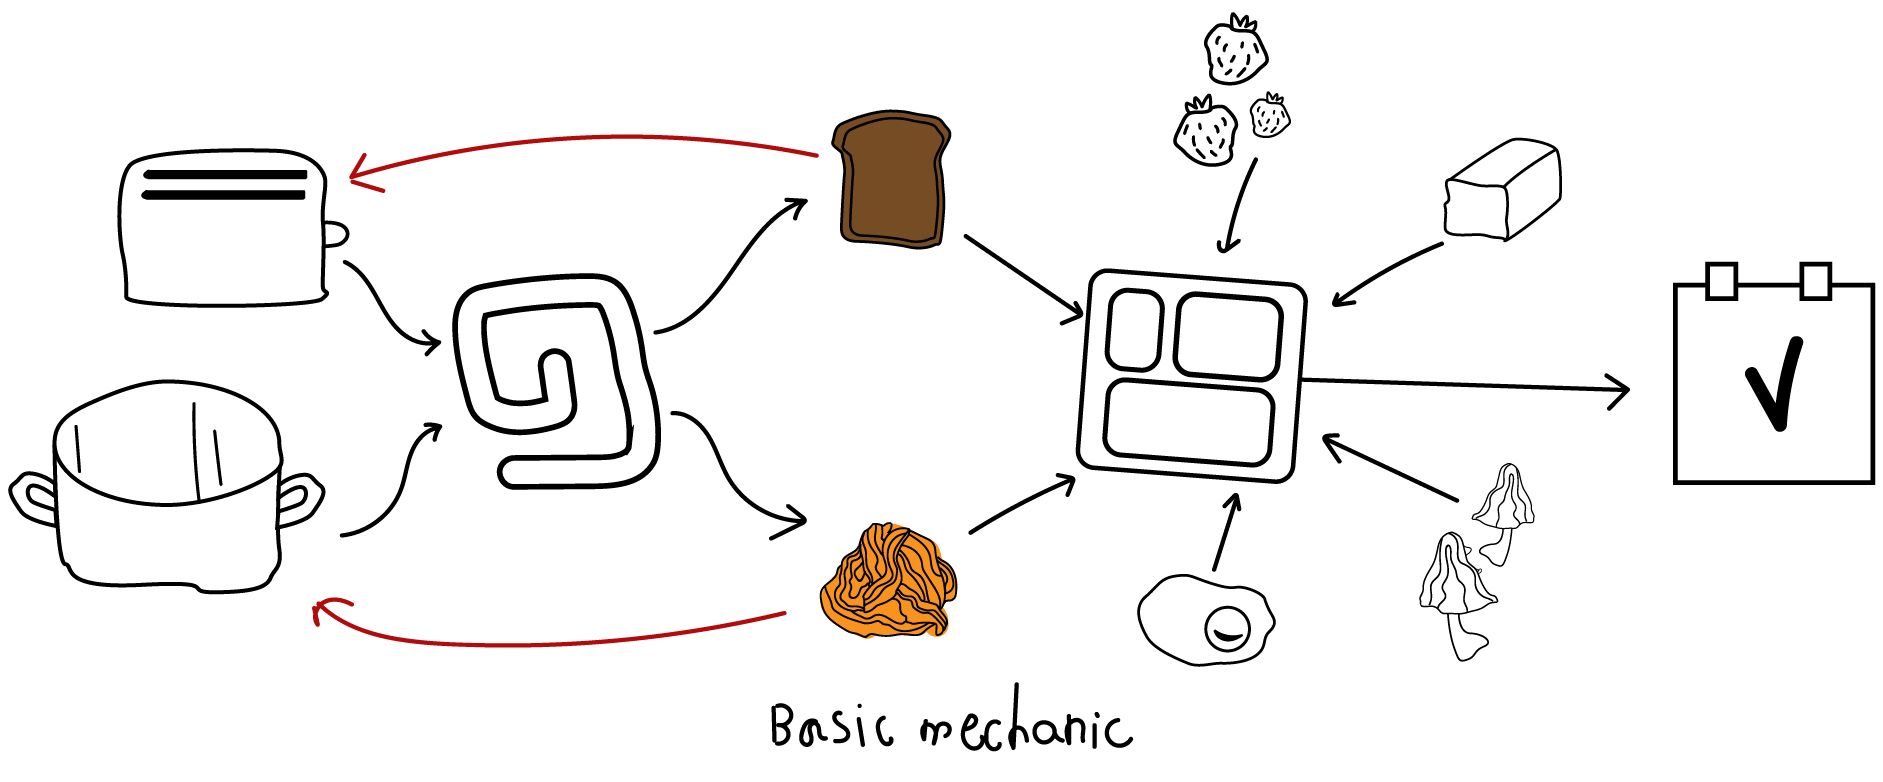 Basic mechanic